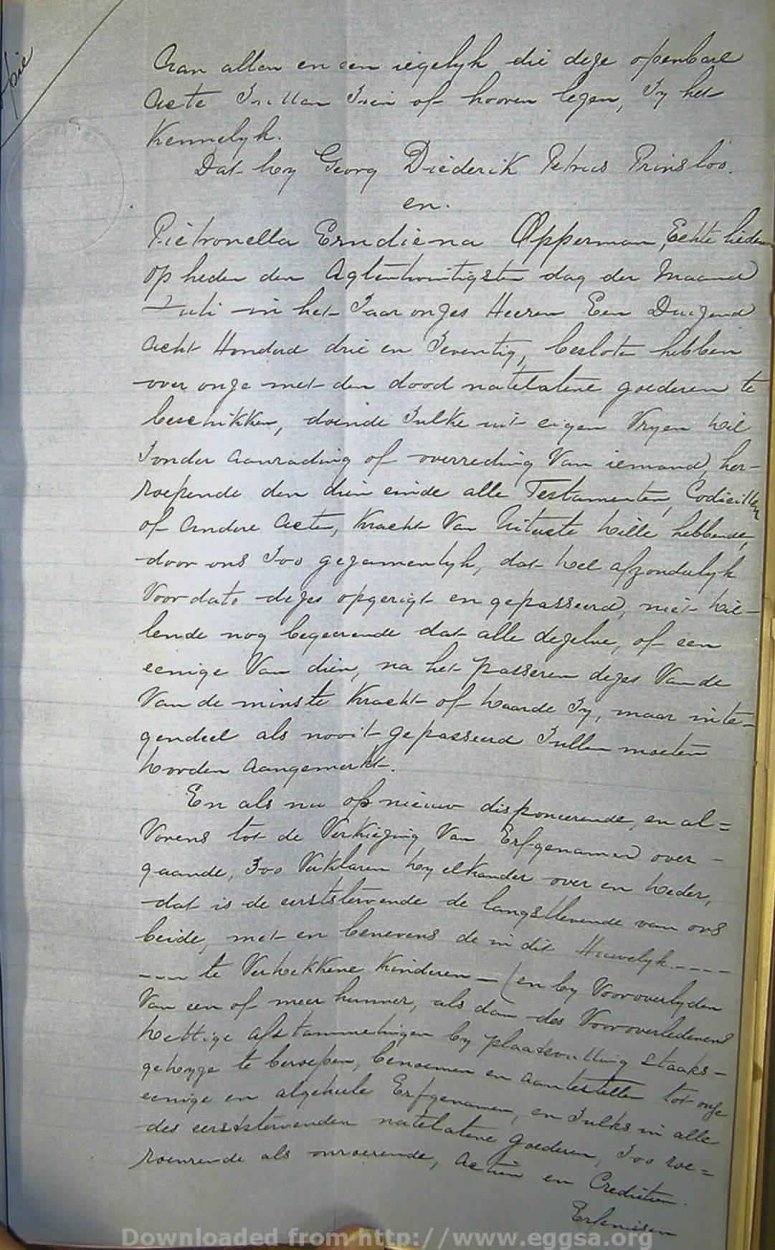 Aan allen en een iegelyk die deze openbare
Acte Zullen Zien of hooren lezen, Zy het
Kennelyk.
Dat Wy Georg Diederik Petrus Prinsloo.
en.
Pietronella Erndiena Opperman, Echte lieden
op heden den Agtentwintigsten dag der Maand
Juli in het Jaar onzes Heeren Een Duizend
Acht Honderd drie en Zeventig, besloten hebben
over onze met den dood natelatene goederen te
beschikken, doende Zulks uit eigen Vryen Wil
Zonder aanrading of overreding Van iemand, her-
roepende den dien einde alle Testamenten, Codicillen
of Andere Acten, Kracht Van Uiterste Wille hebbende,
door ons Zoo gezamenlyk, dat Wel afzonderlyk
Voor dato dezes opgerigt en gepasseerd, niet Wil-
lende nog begeerende dat alle dezelve, of een
eenige Van dien, na het passeren dezes Van de
Van de minste Kracht of Waarde Zy, maar inte-
gendeel als nooit gepasseerd Zullen moeten
Worden Aangemerkt.
En als nu op nieuw disponeerende, en al=
Vorens tot de Verkiezing Van Erfgenamen over-
gaande, Zoo Verklaren Wy elkander over en Weder,
dat is de eerststervende de langstlevende van ons
beide, met en benevens de in dit Huwelyk ----
---- te Verwekkene Kinderen - (en by Vooroverlyden
Van een of meer hunner, als dan des Vooroverledenens
Wettige afstammelingen by plaatsvulling Staaks-
gewyze te beroepen, benoemen en aantestellen tot onze
eenige en algeheele Erfgenamen, en Zulks in alle
des eerststervenden natelatene goederen, Zoo roe=
roerende als onroerende, Actien en Credieten.
Erfenissen
Downloaded from http://www.eggsa.org